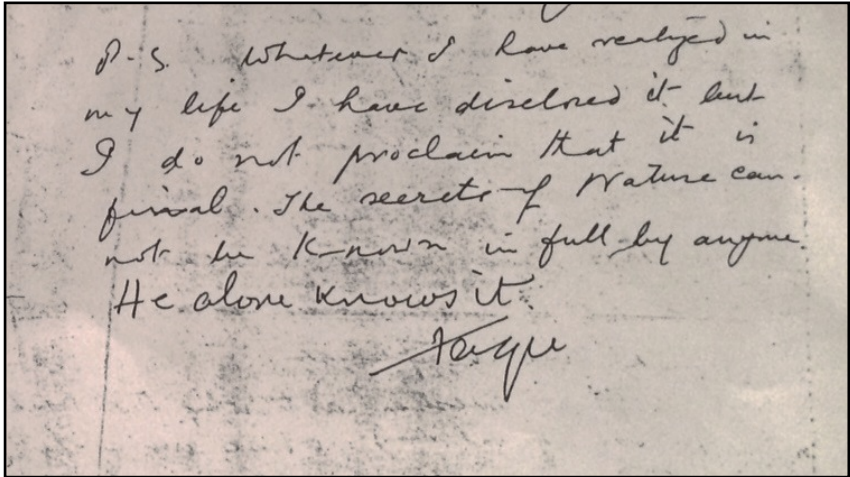 P.S. Whatever I have realized in
my life I have disclosed it but
I do not proclaim that it is
final. The secrets of Nature can-
not be known in full by anyone.
He alone knows it.